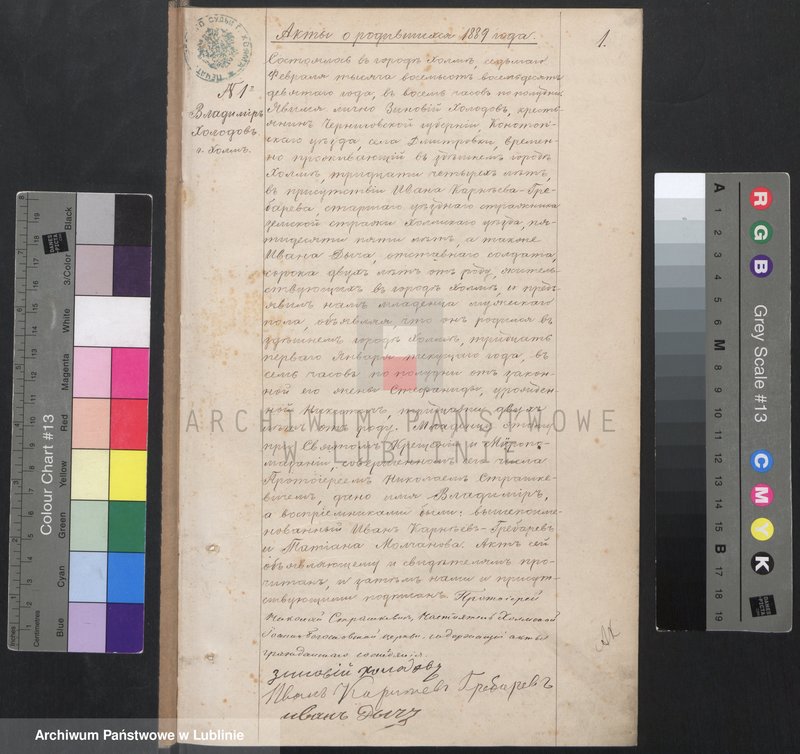 Акты о родившихся 1889 года.
1.
№ 1й
Владиміръ
Холодовъ.
г. Холмъ.
Состоялось въ городѣ Холмѣ, седьмаго
Февраля тысяча восемьсотъ восемьдесятъ
девятаго года, въ восемь часовъ по полудни
Явился лично Зиновій Холодовъ, кресть-
янинъ Черниговской губерніи, Конотоп-
скаго уѣзда, села Дмитровки, времен-
но проживающій въ здѣшнемъ городѣ
Холмѣ тридцати четырехъ лѣтъ,
въ присутствіи Ивана Карнѣева-Гре-
барева старшаго уѣзднаго стражника
земской стражи Холмскаго уѣзда, пя-
тидесяти пяти лѣтъ, а также
Ивана Дыча, отставнаго солдата,
сорока двухъ лѣтъ отъ роду, житель-
ствующихъ въ городѣ Холмѣ, и предъ-
явилъ намъ младенца мужескаго
пола, объявляя, что онъ родился въ
здѣшнемъ городѣ Холмѣ, тридцать
перваго Января текущаго года, въ
семь часовъ по полудни отъ закон-
ной его жены Стефаниды, урожден-
ной тридцати двухъ
лѣтъ отъ роду. Младенцу этому
при Святомъ Крещеніи и Мѵропо-
мазаніи совершенномъ сего числа
Протоіереемъ Николаемъ Страшке-
вичемъ, дано имя Владиміръ,
а воспріемниками были: вышепоиме-
нованный Иванъ Карнѣевъ-Гребаревъ
и Татіана Молчанова. Актъ сей
объявляющему и свидѣтелямъ про-
читанъ, и затѣмъ нами и присут-
ствующими подписанъ. Протоіерей
Николай Страшкевичъ, Настоятель Холмской
церкви, содержащій акты
гражданскаго состоянія.
зиновій холодовъ
Иванъ Карнѣевъ Гребаревъ
иванъ Дычъ
ARCHIWUM PAŃSTWOWE
W LUBLINIE
Archiwum Państwowe w Lublinie
Colour Chart #13
Black
3/Color
White
Magenta
Red
Yellow
Green
Cyan
Blue
Inches
Centimetres
DANES
PICTA
Grey Scale #13
R
G
B
C
M
Y
K
A 1 2 3 4 5 6 M 8 9 10 11 12 13 14 15 B 17 18 19